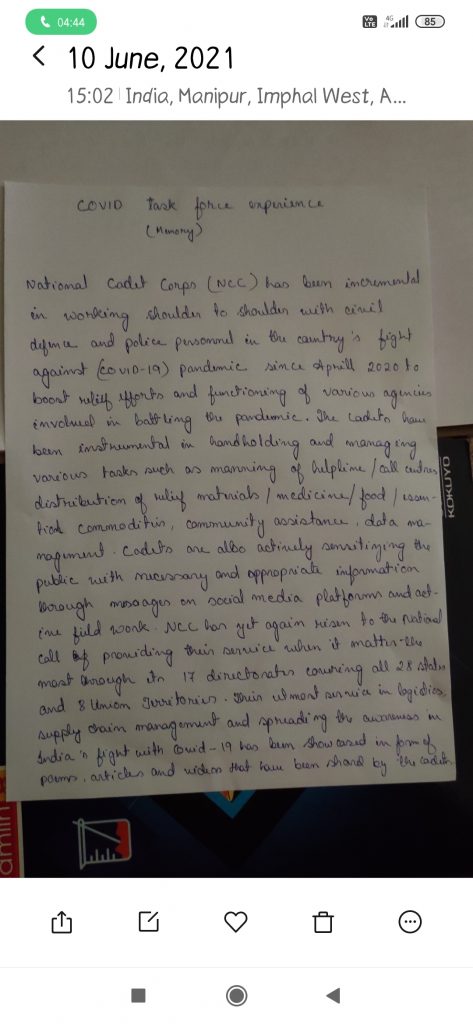 04:44
Vo
LTE
4G
85
10 June, 2021
15:02 India, Manipur, Imphal West, A...
COVID Task force experience
(Memory)
National Cadet Corps (NCC) has been incremental
in working shoulder to shoulder with civil
defence and police personnel in the country's fight
against (COVID-19) pandemic since Aprill 2020 to
boost relief efforts and functioning of various agencies
involved in battling the pandemic. The cadets have
been instrumental in handholding and managing
various tasks such as manning of helpline / call centres
distribution of relief materials / medicine / food / essen-
tial commodities, community assistance, data ma-
nagement. Cadets are also actively sensitizing the
public with necessary and appropriate information
through messages on social media platforms and act-
ive field work. NCC has yet again risen to the national
call of providing their service when it matters the
most through its 17 directorates covering all 28 states
and 8 Union Territories. Their utmost service in logistics,
supply chain management and spreading the awareness in
India's fight with Covid-19 has been showcased in form of
poems, articles and videos that have been shared by the cadets.
KOKUYO
amlin